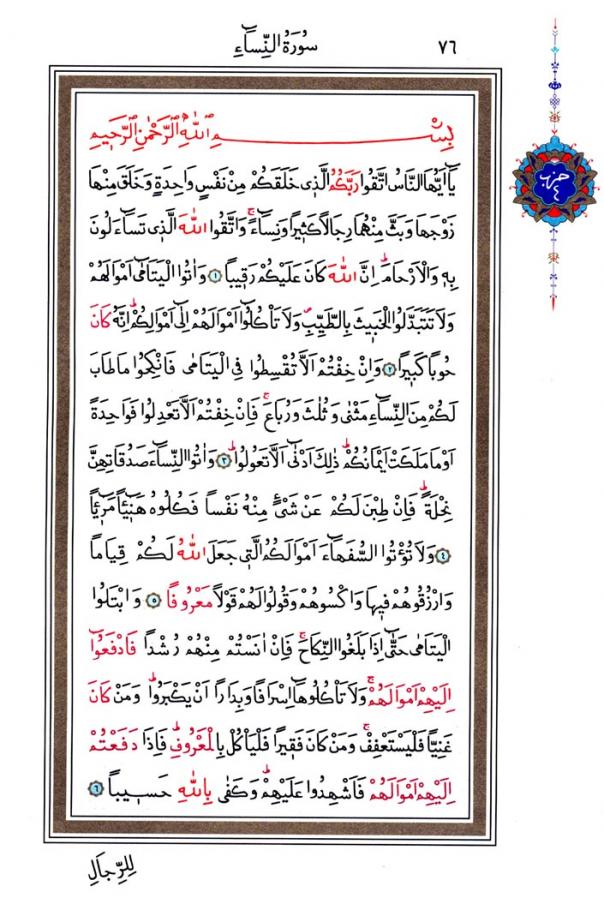 ٧٦
سُورَةُ النِّسَاءِ
بِسْمِ اللّٰهِ الرَّحْمٰنِ الرَّحِيمِ
يَٓا اَيُّهَا النَّاسُ اتَّقُوا رَبَّكُمُ الَّذ۪ي خَلَقَكُمْ مِنْ نَفْسٍ وَاحِدَةٍ وَخَلَقَ مِنْهَا
زَوْجَهَا وَبَثَّ مِنْهُمَا رِجَالًا كَث۪يرًا وَنِسَٓاءًۚ وَاتَّقُوا اللّٰهَ الَّذ۪ي تَسَٓاءَلُونَ
بِه۪ وَالْاَرْحَامَۜ اِنَّ اللّٰهَ كَانَ عَلَيْكُمْ رَق۪يبًا ١ وَاٰتُوا الْيَتَامٰٓى اَمْوَالَهُمْ
وَلَا تَتَبَدَّلُوا الْخَب۪يثَ بِالطَّيِّبِۖ وَلَا تَأْكُلُٓوا اَمْوَالَهُمْ اِلٰٓى اَمْوَالِكُمْۜ اِنَّهُ كَانَ
حُوبًا كَب۪يرًا ٢ وَاِنْ خِفْتُمْ اَلَّا تُقْسِطُوا فِي الْيَتَامٰى فَانْكِحُوا مَا طَابَ
لَكُمْ مِنَ النِّسَٓاءِ مَثْنٰى وَثُلٰثَ وَرُبَاعَۚ فَاِنْ خِفْتُمْ اَلَّا تَعْدِلُوا فَوَاحِدَةً
اَوْ مَا مَلَكَتْ اَيْمَانُكُمْۜ ذٰلِكَ اَدْنٰٓى اَلَّا تَعُولُواۜ ٣ وَاٰتُوا النِّسَٓاءَ صَدُقَاتِهِنَّ
نِحْلَةًۜ فَاِنْ طِبْنَ لَكُمْ عَنْ شَيْءٍ مِنْهُ نَفْسًا فَكُلُوهُ هَن۪ٓيـًٔا مَر۪ٓيـًٔا
٤ وَلَا تُؤْتُوا السُّفَهَٓاءَ اَمْوَالَكُمُ الَّت۪ي جَعَلَ اللّٰهُ لَكُمْ قِيَامًا
وَارْزُقُوهُمْ ف۪يهَا وَاكْسُوهُمْ وَقُولُوا لَهُمْ قَوْلًا مَعْرُوفًا ٥ وَابْتَلُوا
الْيَتَامٰى حَتّٰٓى اِذَا بَلَغُوا النِّكَاحَۚ فَاِنْ اٰنَسْتُمْ مِنْهُمْ رُشْدًا فَادْفَعُٓوا
اِلَيْهِمْ اَمْوَالَهُمْۚ وَلَا تَأْكُلُوهَٓا اِسْرَافًا وَبِدَارًا اَنْ يَكْبَرُواۜ وَمَنْ كَانَ
غَنِيًّا فَلْيَسْتَعْفِفْۚ وَمَنْ كَانَ فَق۪يرًا فَلْيَأْكُلْ بِالْمَعْرُوفِۜ فَاِذَا دَفَعْتُمْ
اِلَيْهِمْ اَمْوَالَهُمْ فَاَشْهِدُوا عَلَيْهِمْۜ وَكَفٰى بِاللّٰهِ حَس۪يبًا ٦
لِلرِّجَالِ
حزب ٤